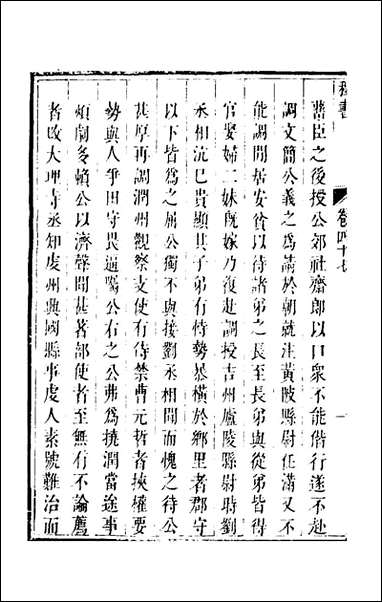 卷四十七
一
舊臣之後授公郊社齋郎以口衆不能偕行遂不赴
調文簡公義之爲請於朝就注黃陂縣尉任滿又不
能調閒居安貧以待諸弟之長至長弟與從弟皆得
官娶婦二妹既嫁乃復赴調授吉州廬陵縣尉時劉
丞相沆已貴顯其子弟有恃勢暴橫於鄉里者郡守
以下皆爲之屈公獨不與接劉丞相聞而愧之待公
甚厚再調潤州觀察支使有侍禁曹元哲者挾權要
勢與人爭田守畏逼囑公右之公弗爲撓潤當途事
頗劇多賴公以濟聲聞甚著部使者至無有不論薦
者改大理寺丞知虔州興國縣事虔人素號難治而